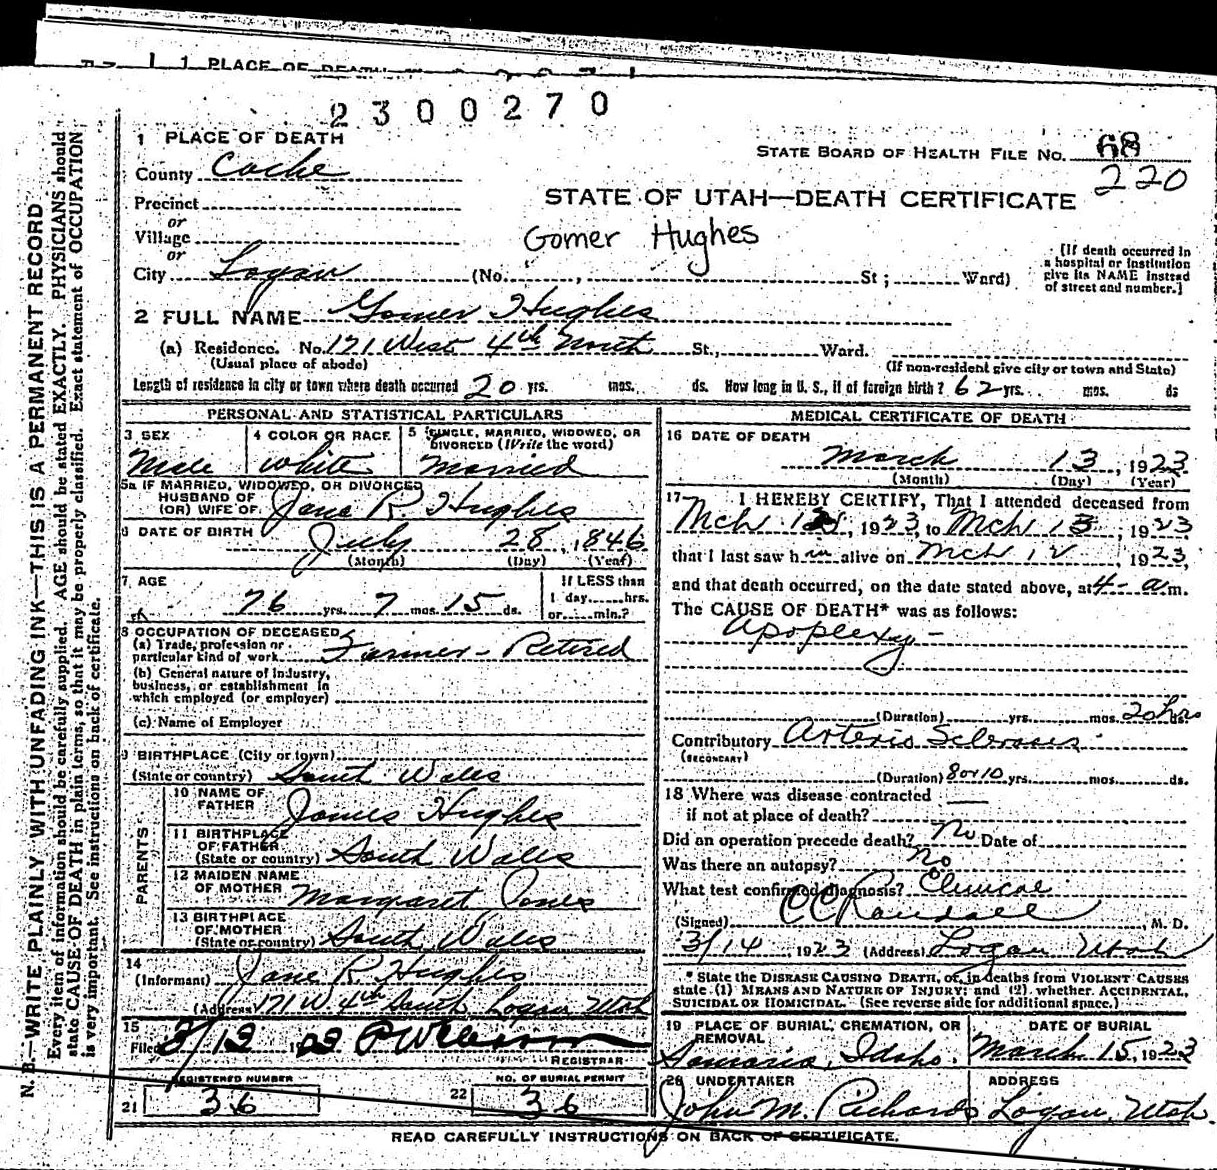 1 PLACE OF DEATH
2300270
1 PLACE OF DEATH
STATE BOARD OF HEALTH FILE NO. 68
220
County Cache
STATE OF UTAH—DEATH CERTIFICATE
Precinct
or
Village
Gomer Hughes
or
City Logan (No. , St ; Ward)
[If death occurred in
a hospital or institution
give its NAME instead
of street and number.]
2 FULL NAME Gomer Hughes
(a) Residence. No. 171 West 4th North St., Ward.
(Usual place of abode) (If non-resident give city or town and State)
Length of residence in city or town where death occurred 20 yrs. mos. ds. How long in U. S., if of foreign birth? 62 yrs. mos. ds
PERSONAL AND STATISTICAL PARTICULARS
3 SEX
Male
4 COLOR OR RACE
White
5 SINGLE, MARRIED, WIDOWED, OR
DIVORCED (Write the word)
Married
5a IF MARRIED, WIDOWED, OR DIVORCED
HUSBAND OF
(OR) WIFE OF Jane R Hughes
6 DATE OF BIRTH July 28, 1846
(Month) (Day) (Year)
7 AGE
76 yrs. 7 mos. 15 ds.
If LESS than
1 day......hrs.
or......min.?
8 OCCUPATION OF DECEASED
(a) Trade, profession or
particular kind of work Farmer - Retired
(b) General nature of industry,
business, or establishment in
which employed (or employer)
(c) Name of Employer
9 BIRTHPLACE (City or town)
(State or country) South Wales
PARENTS
10 NAME OF
FATHER James Hughes
11 BIRTHPLACE
OF FATHER
(State or country) South Wales
12 MAIDEN NAME
OF MOTHER Margaret Jones
13 BIRTHPLACE
OF MOTHER
(State or country) South Wales
14
(Informant) Jane R. Hughes
(Address 171 W 4th South, Logan Utah
15
Filed 3/12
REGISTRAR
REGISTERED NUMBER
21 36
NO. OF BURIAL PERMIT
22 36
MEDICAL CERTIFICATE OF DEATH
16 DATE OF DEATH
March 13, 1923
(Month) (Day) (Year)
17 I HEREBY CERTIFY, That I attended deceased from
Mch 12, 1923, to Mch 13, 1923
that I last saw him alive on Mch 12, 1923,
and that death occurred, on the date stated above, at 4- a m.
The CAUSE OF DEATH* was as follows:
Apoplexy -
(Duration) yrs. mos. 20 hrs ds.
Contributory Arterio Sclerosis
(SECONDARY)
(Duration) 8 or 10 yrs. mos. ds.
18 Where was disease contracted
if not at place of death?
Did an operation precede death? No Date of
Was there an autopsy? No
What test confirmed diagnosis? Clinical
(Signed) CC Randall, M. D.
3/14, 1923 (Address) Logan Utah
* State the DISEASE CAUSING DEATH, or, in deaths from VIOLENT CAUSES
state (1) MEANS AND NATURE OF INJURY; and (2) whether ACCIDENTAL,
SUICIDAL OR HOMICIDAL. (See reverse side for additional space.)
19 PLACE OF BURIAL, CREMATION, OR
REMOVAL
Samaria, Idaho.
DATE OF BURIAL
March 15, 1923
20 UNDERTAKER
John M. Richards
ADDRESS
Logan, Utah
READ CAREFULLY INSTRUCTIONS ON BACK OF CERTIFICATE.
N. B.—WRITE PLAINLY WITH UNFADING INK—THIS IS A PERMANENT RECORD
Every item of information should be carefully supplied. AGE should be stated EXACTLY. PHYSICIANS should
state CAUSE OF DEATH in plain terms, so that it may be properly classified. Exact statement of OCCUPATION
is very important. See instructions on back of certificate.